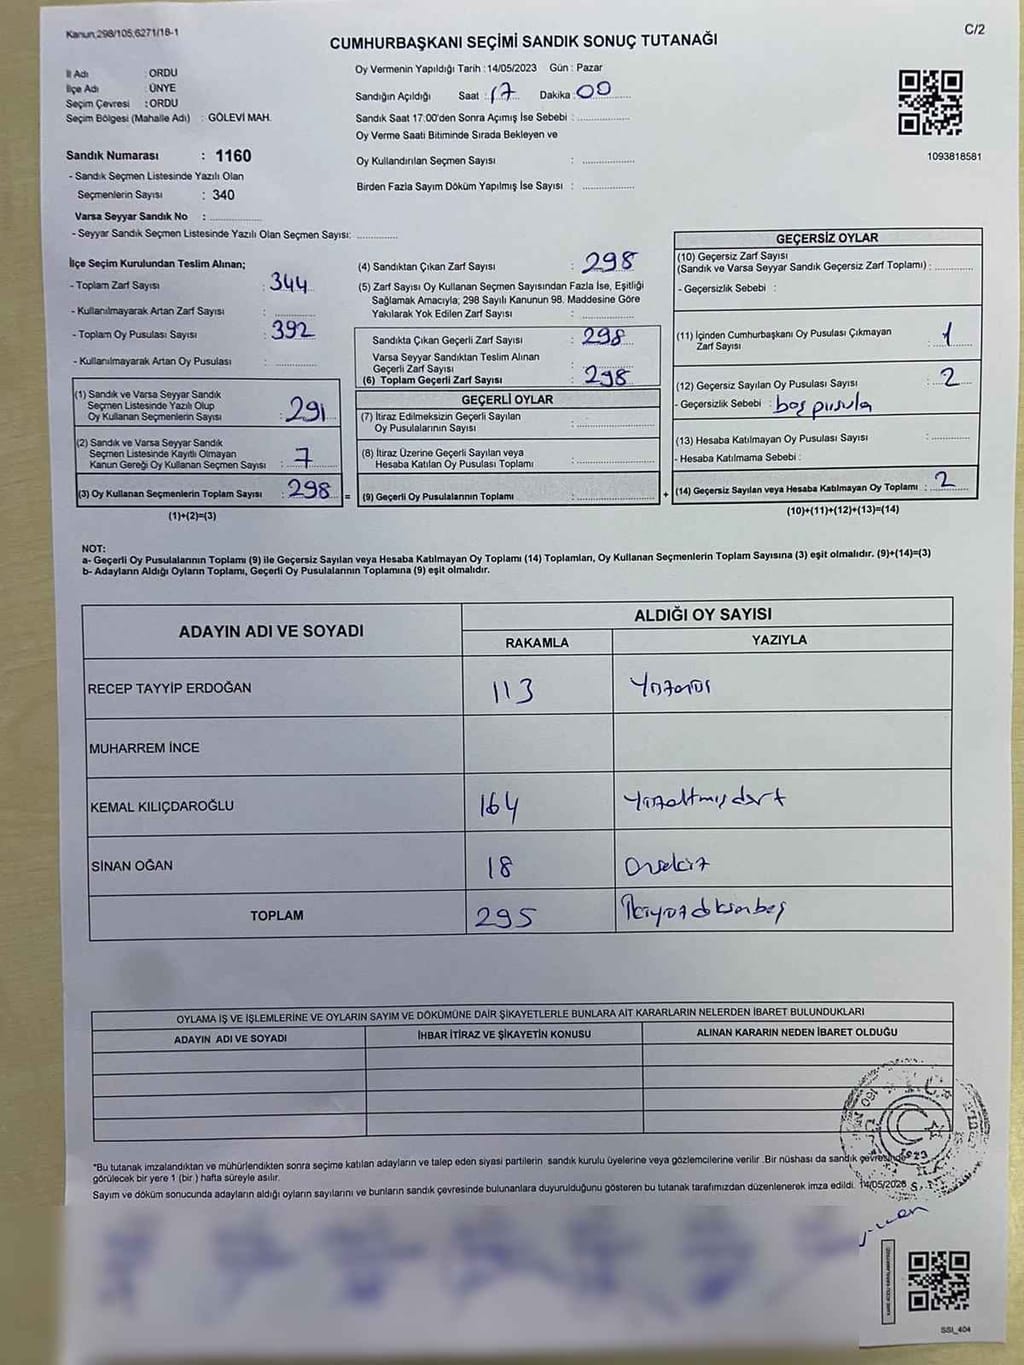 Kanun,298/105,6271/18-1
C/2
CUMHURBAŞKANI SEÇİMİ SANDIK SONUÇ TUTANAĞI
İl Adı : ORDU
İlçe Adı : ÜNYE
Seçim Çevresi : ORDU
Seçim Bölgesi (Mahalle Adı) : GÖLEVİ MAH.
Sandık Numarası : 1160
- Sandık Seçmen Listesinde Yazılı Olan
Seçmenlerin Sayısı : 340
Varsa Seyyar Sandık No :
- Seyyar Sandık Seçmen Listesinde Yazılı Olan Seçmen Sayısı:
Oy Vermenin Yapıldığı Tarih : 14/05/2023 Gün : Pazar
Sandığın Açıldığı Saat : 17 Dakika : 00
Sandık Saat 17:00'den Sonra Açımış İse Sebebi :
Oy Verme Saati Bitiminde Sırada Bekleyen ve
Oy Kullandırılan Seçmen Sayısı :
Birden Fazla Sayım Döküm Yapılmış İse Sayısı :
1093818581
İlçe Seçim Kurulundan Teslim Alınan;
- Toplam Zarf Sayısı : 344
- Kullanılmayarak Artan Zarf Sayısı :
- Toplam Oy Pusulası Sayısı : 392
- Kullanılmayarak Artan Oy Pusulası :
(1) Sandık ve Varsa Seyyar Sandık
Seçmen Listesinde Yazılı Olup
Oy Kullanan Seçmenlerin Sayısı : 291
(2) Sandık ve Varsa Seyyar Sandık
Seçmen Listesinde Kayıtlı Olmayan
Kanun Gereği Oy Kullanan Seçmen Sayısı : 7
(3) Oy Kullanan Seçmenlerin Toplam Sayısı : 298 =
(1)+(2)=(3)
(4) Sandıktan Çıkan Zarf Sayısı : 298
(5) Zarf Sayısı Oy Kullanan Seçmen Sayısından Fazla İse, Eşitliği
Sağlamak Amacıyla; 298 Sayılı Kanunun 98. Maddesine Göre
Yakılarak Yok Edilen Zarf Sayısı :
Sandıkta Çıkan Geçerli Zarf Sayısı : 298
Varsa Seyyar Sandıktan Teslim Alınan
Geçerli Zarf Sayısı :
(6) Toplam Geçerli Zarf Sayısı : 298
GEÇERLİ OYLAR
(7) İtiraz Edilmeksizin Geçerli Sayılan
Oy Pusulalarının Sayısı :
(8) İtiraz Üzerine Geçerli Sayılan veya
Hesaba Katılan Oy Pusulası Toplamı :
(9) Geçerli Oy Pusulalarının Toplamı : +
GEÇERSİZ OYLAR
(10) Geçersiz Zarf Sayısı
(Sandık ve Varsa Seyyar Sandık Geçersiz Zarf Toplamı) :
- Geçersizlik Sebebi :
(11) İçinden Cumhurbaşkanı Oy Pusulası Çıkmayan
Zarf Sayısı : 1
(12) Geçersiz Sayılan Oy Pusulası Sayısı : 2
- Geçersizlik Sebebi : boş pusula
(13) Hesaba Katılmayan Oy Pusulası Sayısı :
- Hesaba Katılmama Sebebi :
(14) Geçersiz Sayılan veya Hesaba Katılmayan Oy Toplamı : 2
(10)+(11)+(12)+(13)=(14)
NOT:
a- Geçerli Oy Pusulalarının Toplamı (9) ile Geçersiz Sayılan veya Hesaba Katılmayan Oy Toplamı (14) Toplamları, Oy Kullanan Seçmenlerin Toplam Sayısına (3) eşit olmalıdır. (9)+(14)=(3)
b- Adayların Aldığı Oyların Toplamı, Geçerli Oy Pusulalarının Toplamına (9) eşit olmalıdır.
ADAYIN ADI VE SOYADI
ALDIĞI OY SAYISI
RAKAMLA YAZIYLA
RECEP TAYYİP ERDOĞAN 113
MUHARREM İNCE
KEMAL KILIÇDAROĞLU 164 Yüzaltmışdört
SİNAN OĞAN 18 Onsekiz
TOPLAM 295 İkiyüzdoksanbeş
OYLAMA İŞ VE İŞLEMLERİNE VE OYLARIN SAYIM VE DÖKÜMÜNE DAİR ŞİKAYETLERLE BUNLARA AİT KARARLARIN NELERDEN İBARET BULUNDUKLARI
ADAYIN ADI VE SOYADI İHBAR İTİRAZ VE ŞİKAYETİN KONUSU ALINAN KARARIN NEDEN İBARET OLDUĞU
*Bu tutanak imzalandıktan ve mühürlendikten sonra seçime katılan adayların ve talep eden siyasi partilerin sandık kurulu üyelerine veya gözlemcilerine verilir .Bir nüshası da sandık çevresinde
görülecek bir yere 1 (bir ) hafta süreyle asılır.
Sayım ve döküm sonucunda adayların aldığı oyların sayılarını ve bunların sandık çevresinde bulunanlara duyurulduğunu gösteren bu tutanak tarafımızdan düzenlenerek imza edildi. 14/05/2023
SSI_404